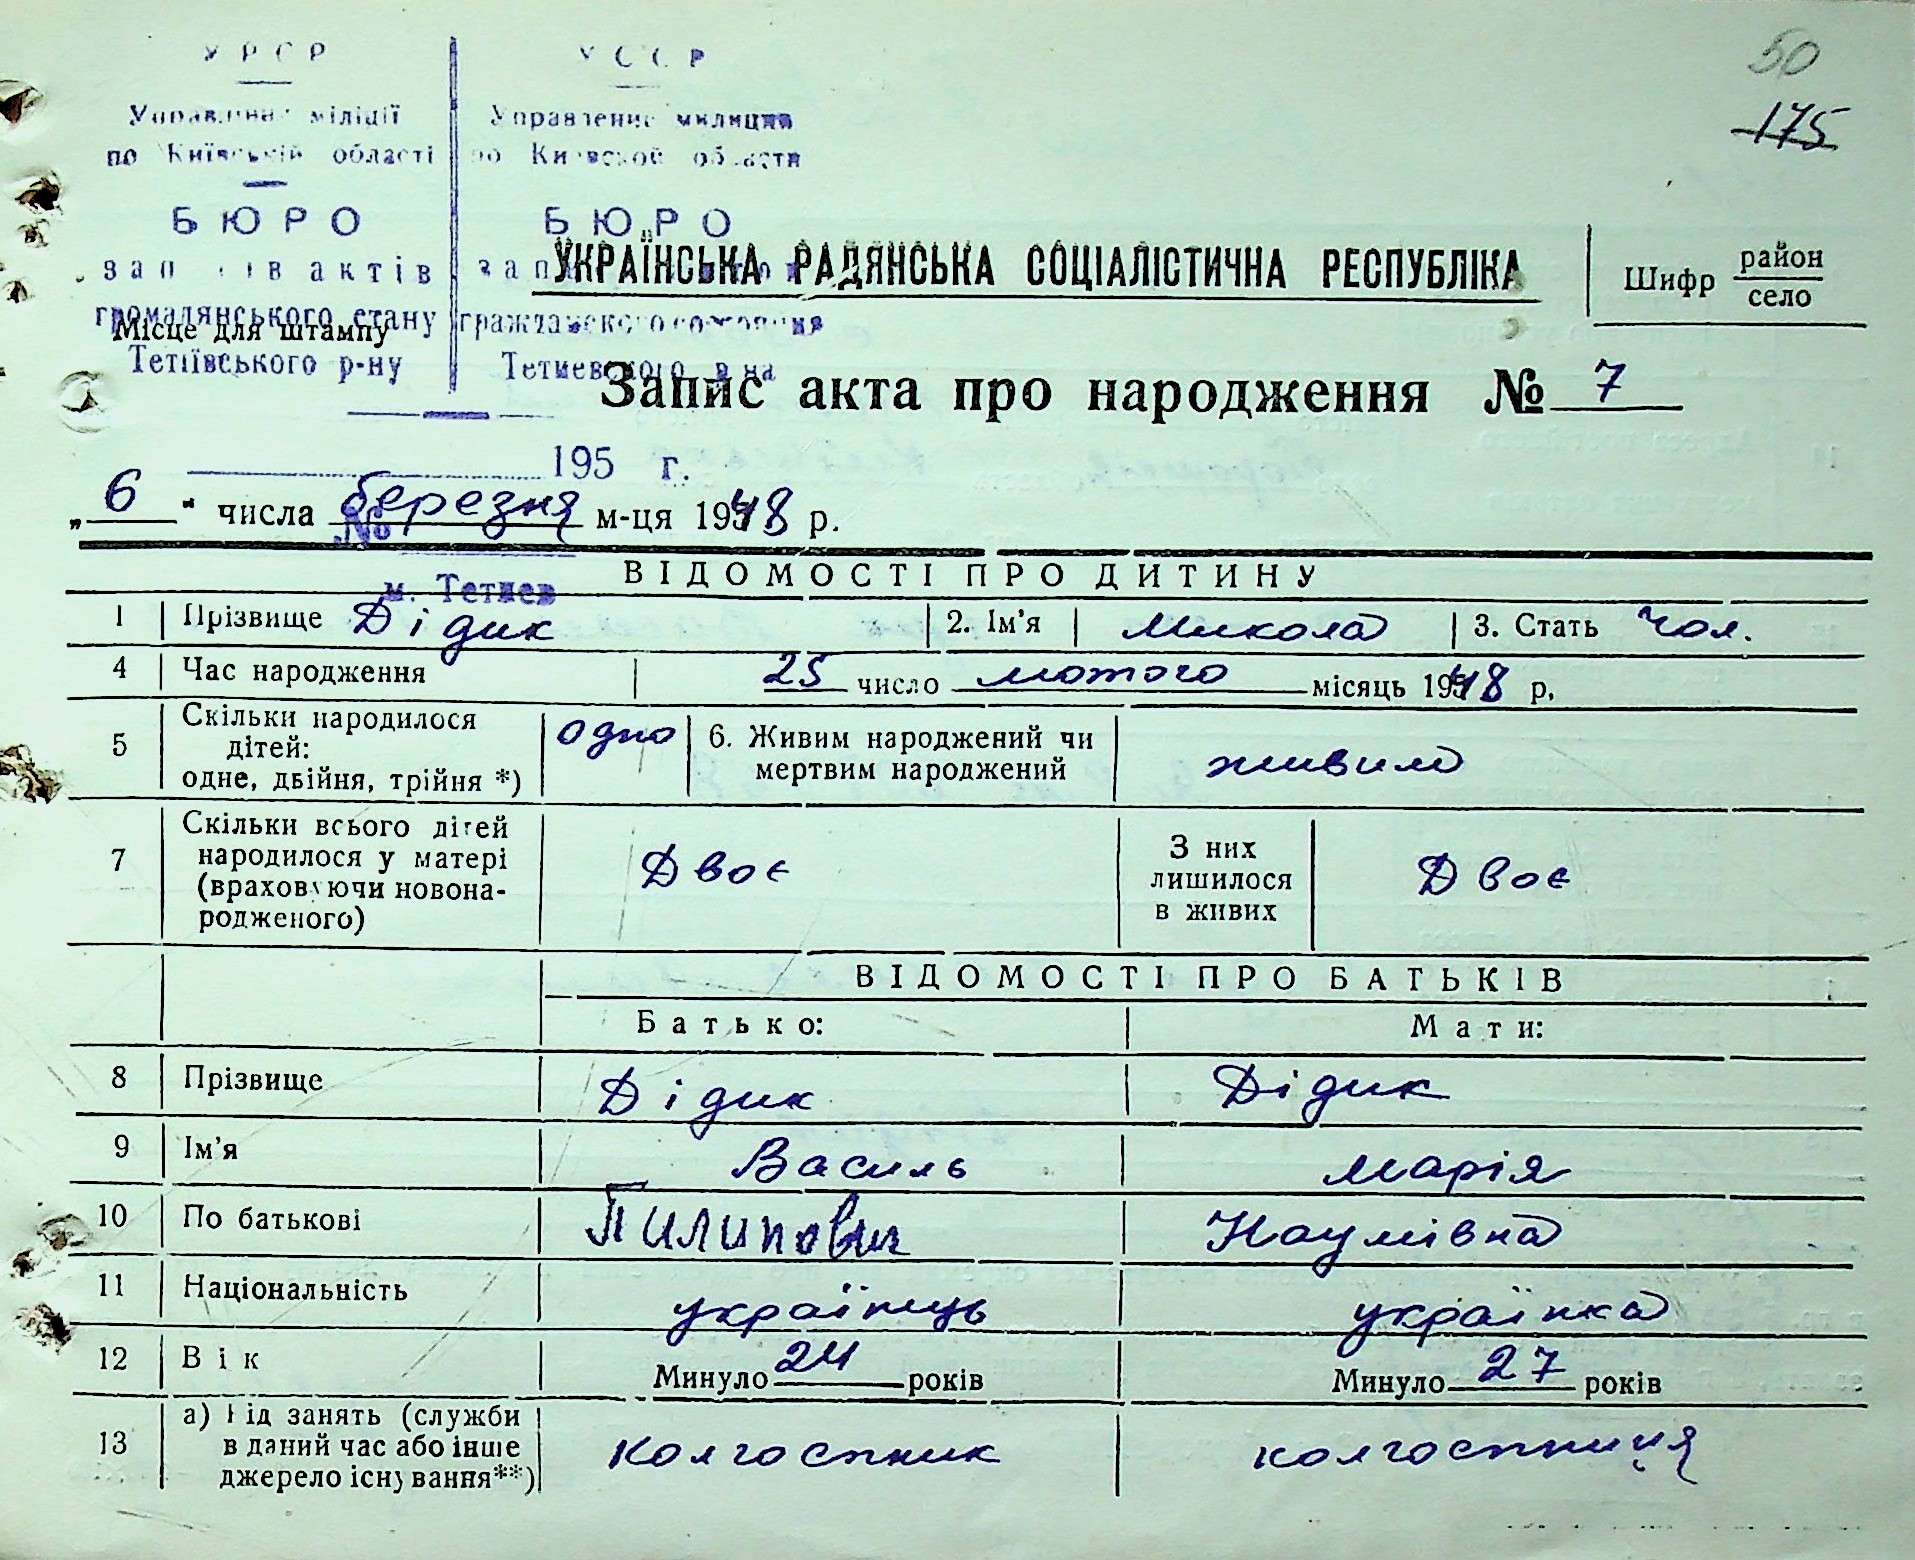 УРСР
Управління міліції
по Київській області
БЮРО
записів актів
громадянського стану
Тетіївського р-ну
УССР
Управление милиции
по Киевской области
БЮРО
Тетиевского р-на
195 г.
№
м. Тетиев
50
175
УКРАЇНСЬКА РАДЯНСЬКА СОЦІАЛІСТИЧНА РЕСПУБЛІКА
Шифр район
село
Місце для штампу
Запис акта про народження № 7
„6“ числа березня м-ця 1948 р.
ВІДОМОСТІ ПРО ДИТИНУ
1 Прізвище Дідик 2. Ім'я Микола 3. Стать Чол.
4 Час народження 25 число лютого місяць 1948 р.
5 Скільки народилося
дітей:
одне, двійня, трійня *) одно
6. Живим народжений чи
мертвим народжений живим
7 Скільки всього дітей
народилося у матері
(враховуючи новона-
родженого) Двоє
З них
лишилося
в живих Двоє
ВІДОМОСТІ ПРО БАТЬКІВ
Батько: Мати:
8 Прізвище Дідик Дідик
9 Ім'я Василь Марія
10 По батькові Пилипович Наумівна
11 Національність українець українка
12 Вік Минуло 24 років Минуло 27 років
13 а) Від занять (служби
в даний час або інше
джерело існування**) колгоспник колгоспниця